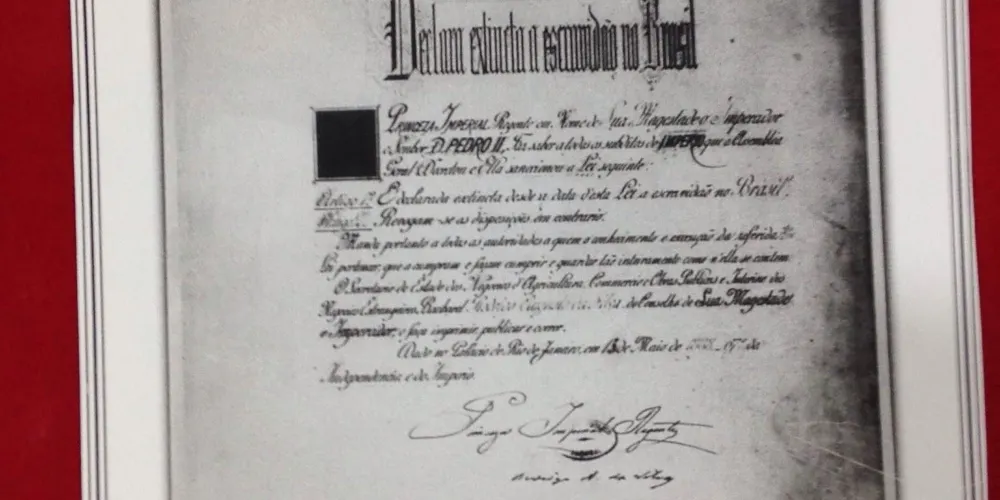 Declara extincta a escravidão no Brasil
PRINCEZA IMPERIAL Regente em Nome de Sua Magestade o Imperador
o Senhor D. PEDRO II, Faz saber a todos os subditos do IMPERIO que a Assembléa
Geral Decretou e Ella sanccionou a Lei seguinte:
Artigo 1º É declarada extincta desde a data d'esta Lei a escravidão no Brasil.
Revogam-se as disposições em contrario.
Manda portanto a todas as autoridades a quem o conhecimento e execução da referida
Lei pertencer, que a cumpram e façam cumprir e guardar tão inteiramente como n'ella se contem.
O Secretario de Estado dos Negocios d'Agricultura, Commercio e Obras Publicas e Interino dos
Negocios Estrangeiros, Bacharel Rodrigo Augusto da Silva, do Conselho de Sua Magestade
o Imperador, o faça imprimir, publicar e correr.
Dado no Palacio do Rio de Janeiro, em 13 de Maio de da
Independencia e do Imperio.
Princeza Imperial Regente
Rodrigo A. da Silva